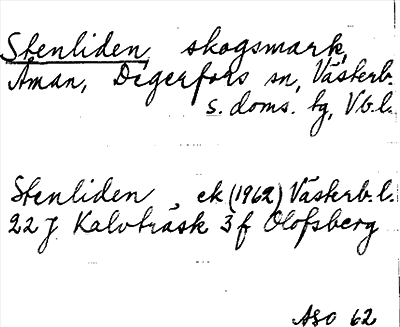 Stenliden, skogsmark,
Åman, Degerfors sn, Västerb.
s. doms. tg, Vb.l.
Stenliden, ek (1962) Västerb.l.
22 J Kalvträsk 3 f Olofsberg
ASO 62